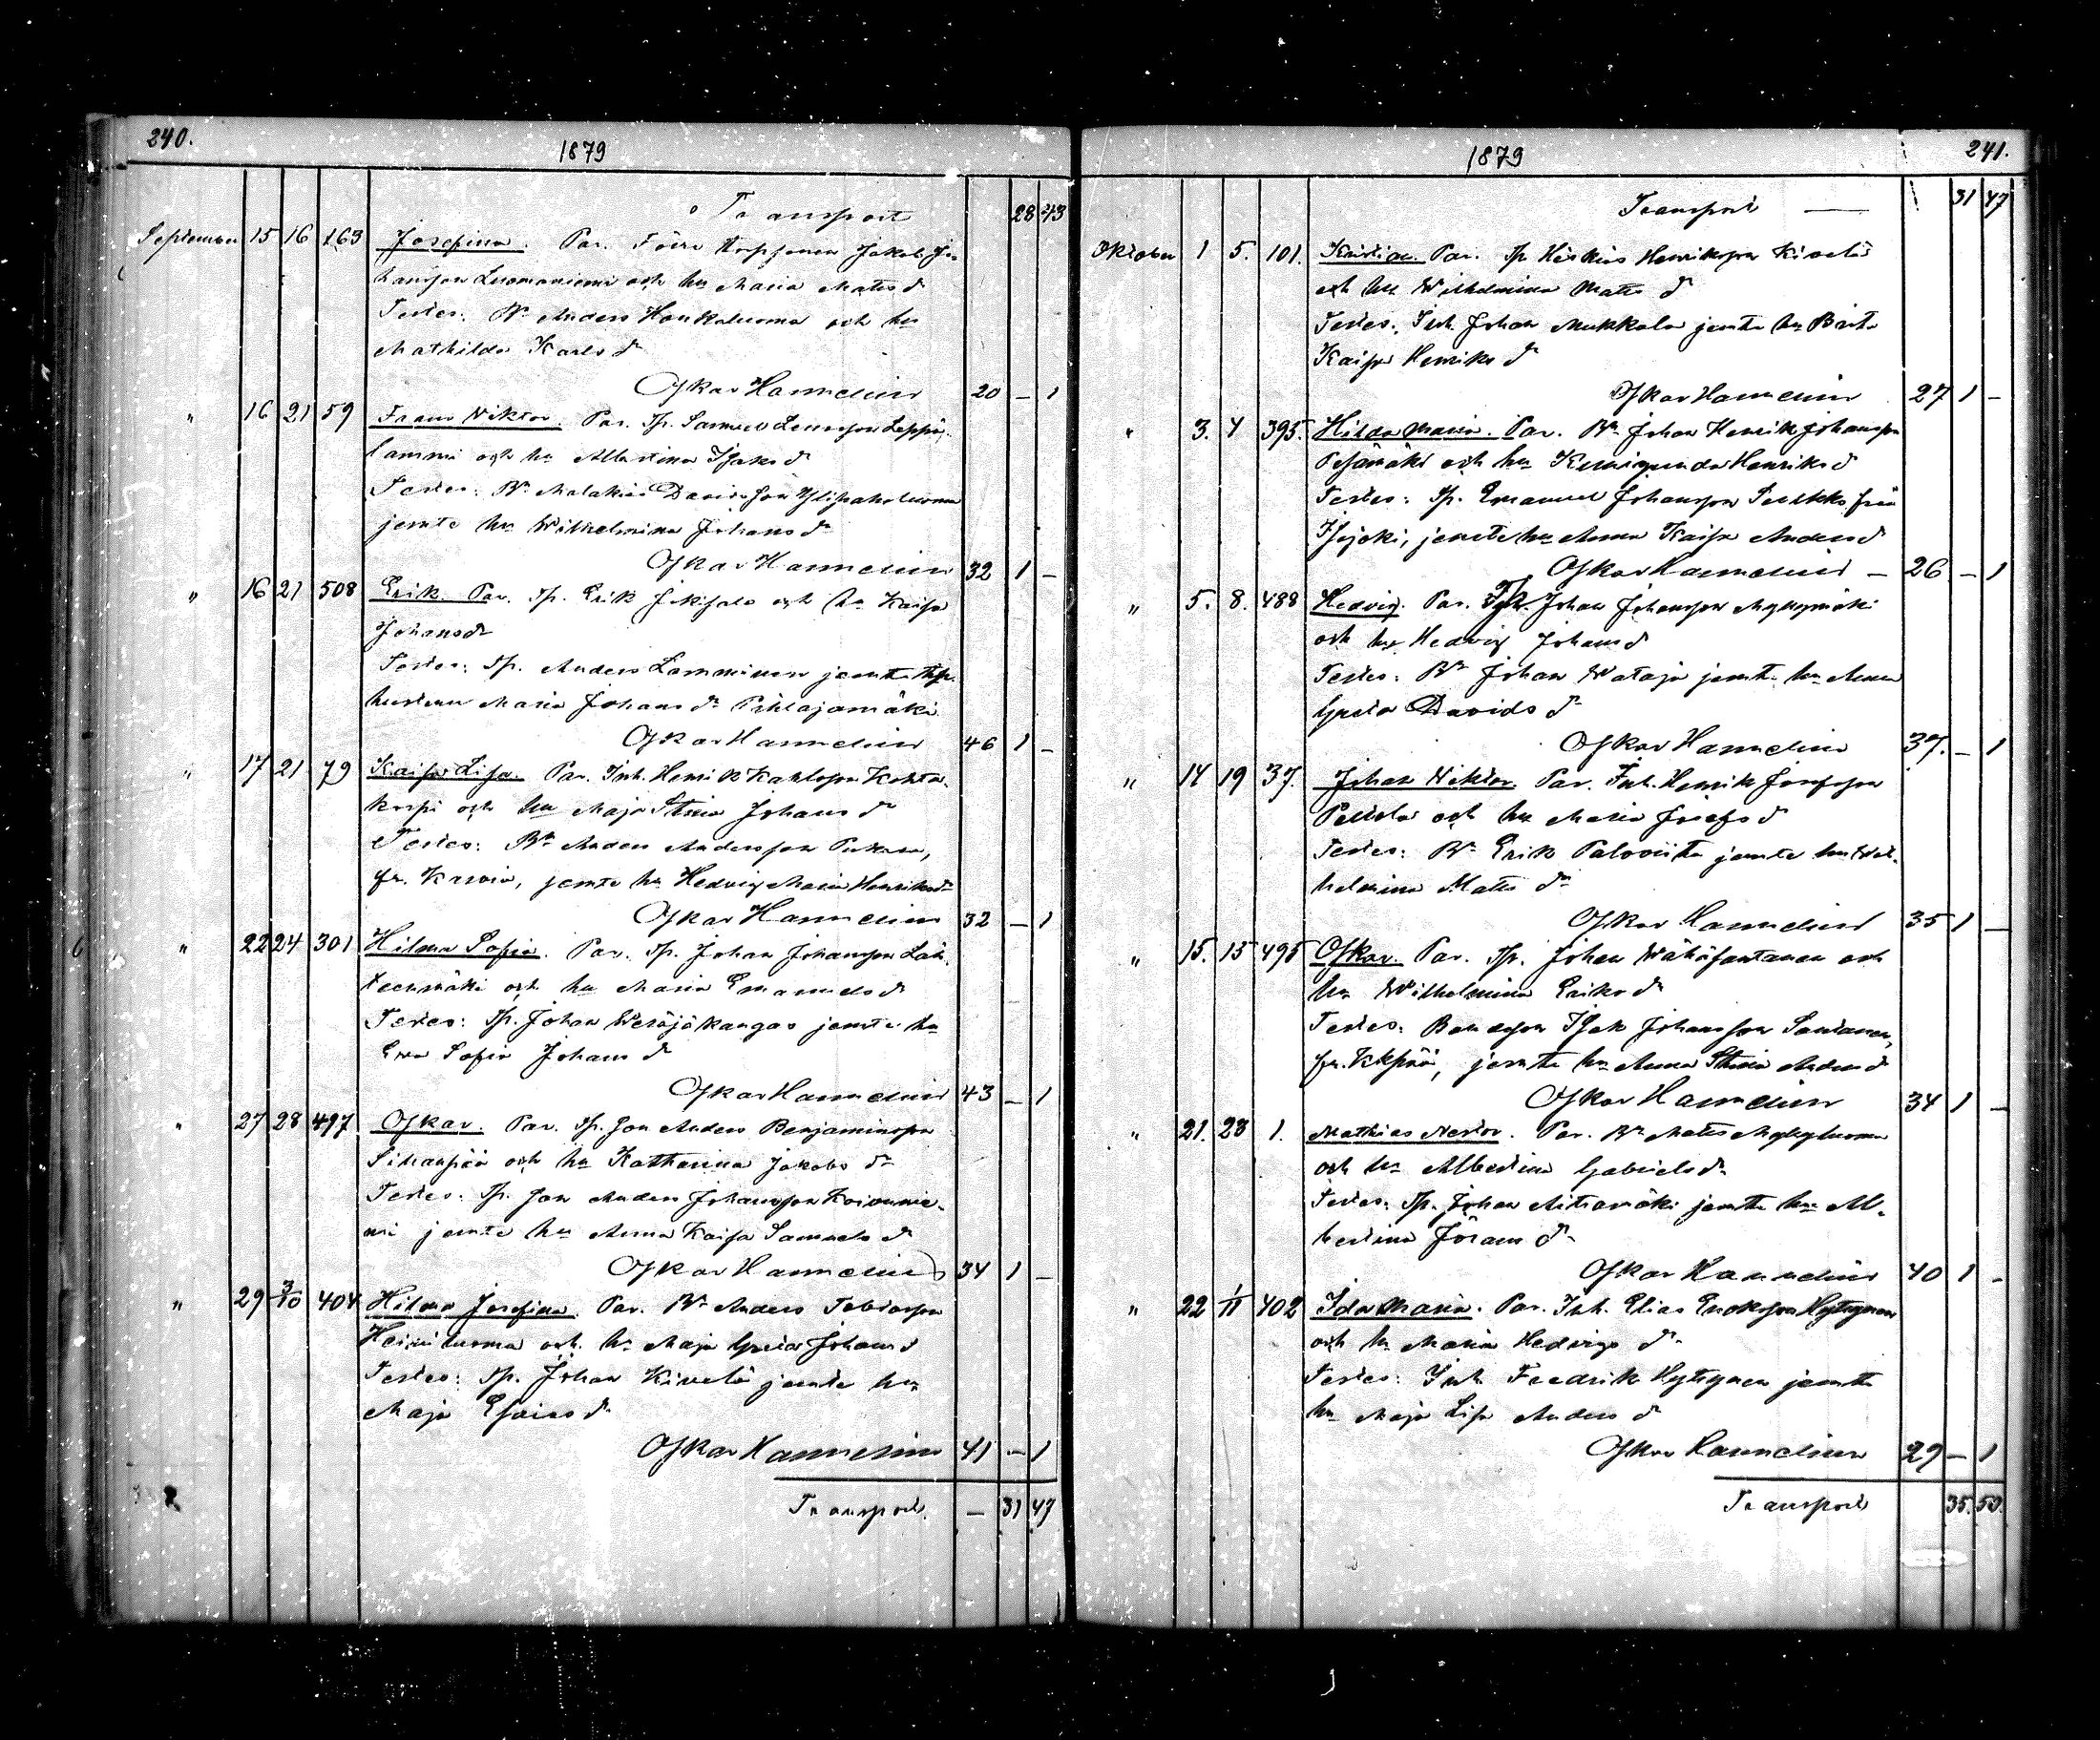 240.
1879
Transport 28 43
September 15 16 163 Josefina. Par. Jakob Jo-
hansson Luomaniemi och hu Maria Mats dr
Testes: Bn Anders Honkaluoma och hu
Mathilda Karls dr
Oskar Hannelius 20 – 1
" 16 21 59 Frans Viktor. Par. Tp. Samuel Leppä-
lammi och hu Albertina Isaks dr
Testes: Bn Malakias Davidsson Ylipaholuoma
jemte hu Wilhelmina Johans dr
Oskar Hannelius 32 1 –
" 16 21 508 Erik. Par. Tp. Erik och hu Kaisa
Johans dr
Testes: Tp. Anders Lamminen jemte
hustrun Maria Johans dr Pihlajamäki
Oskar Hannelius 46 1 –
" 17 21 79 Kaisa Lisa. Par. Inh. Henrik Karlsson
korpi och hu Maja Stina Johans dr
Testes: Bn Anders Andersson
fr. Karvia, jemte hu Hedvig Maria Henriks dr
Oskar Hannelius 32 – 1
" 22 24 301 Hilma Sofia. Par. Tp. Johan Johansson Läh-
teenmäki och hu Maria Emanuels dr
Testes: Tp. Johan Wesajäkangas jemte hu
Eva Sofia Johans dr
Oskar Hannelius 43 – 1
" 27 28 497 Oskar. Par. Tp. Son Anders Benjaminsson
Sikanpää och hu Katharina Jakobs dr
Testes: Tp. Son Anders Johansson Koivunie-
mi jemte hu Anna Kaisa Samuels dr
Oskar Hannelius 34 1 –
" 29 3/10 404 Hilma Josefina. Par. Bn Anders Tobiasson
Heiniluoma och hu Maja Greta Johans d
Testes: Tp. Johan Kivelä jemte hu
Maja Esaias dr
Oskar Hannelius 41 – 1
Transport. – 31 47
1879
241.
Transport — 31 47
Oktober 1 5. 101. Kristian. Par. Tp Heikius Henriksson Kivelä
och hu Wilhelmina Mats dr
Testes: Inh. Johan Mukkala jemte hu Brita
Kaisa Henriks dr
Oskar Hannelius 27 1 –
" 3. 4 395. Hilda Maria. Par. Bn Johan Henrik Johansson
Pesämäki och hu Kunigunda Henriks d
Testes: Tp. Emanuel Johansson från
Isojoki, jemte hu Anna Kaisa Anders d
Oskar Hannelius – 26 – 1
" 5. 8. 488 Hedvig. Par. Johan Johansson Myllymäki
och hu Hedvig Johans d
Testes: Bn Johan Wataja jemte hu Anna
Greta Davids dr
Oskar Hannelius 37. – 1
" 14 19 37. Johan Viktor. Par. Inh. Henrik Josefsson
Pellola och hu Maria Josefs d
Testes: Bn Erik Paloviita jemte hu Wil-
helmina Mats dr
Oskar Hannelius 35 1 –
" 15. 15 495 Oskar. Par. Tp. Johan Wähäsantanen och
hu Wilhelmina Eriks dr
Testes: Bondeson Isak Johansson Santanen,
fr. jemte hu Anna Stina Anders d
Oskar Hannelius 34 1 –
" 21. 23 1. Mathias Nestor. Par. Bn Mats Myllyluoma
och hu Albertina Gabriels dr
Testes: Tp. Johan Aitamäki jemte hu Al-
bertina Jörans dr
Oskar Hannelius 40 1 –
" 22 1/11 402 Ida Maria. Par. Inh. Elias Enoksson Hytynen
och hu Maria Hedvigs dr
Testes: Inh. Fredrik Hytynen jemte
hu Maja Lisa Anders d
Oskar Hannelius 29 – 1
Transport 35. 50.